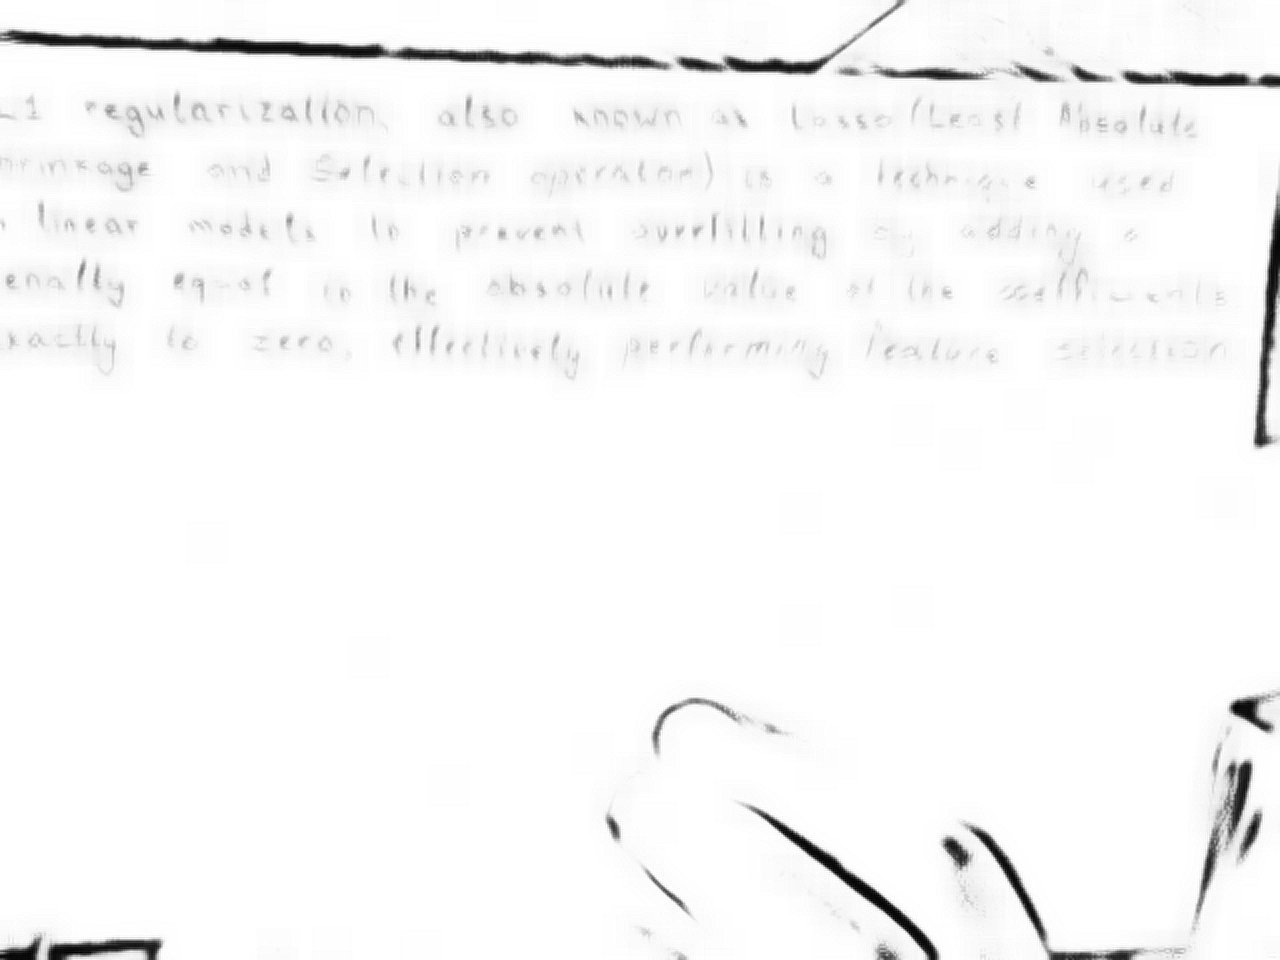 L1 regularization, also known as Lasso (Least Absolute
hrinkage and Selection operator) is a technique used
n linear models to prevent overfitting by adding a
enalty equal to the absolute value of the coefficients
xactly to zero, effectively performing feature selection